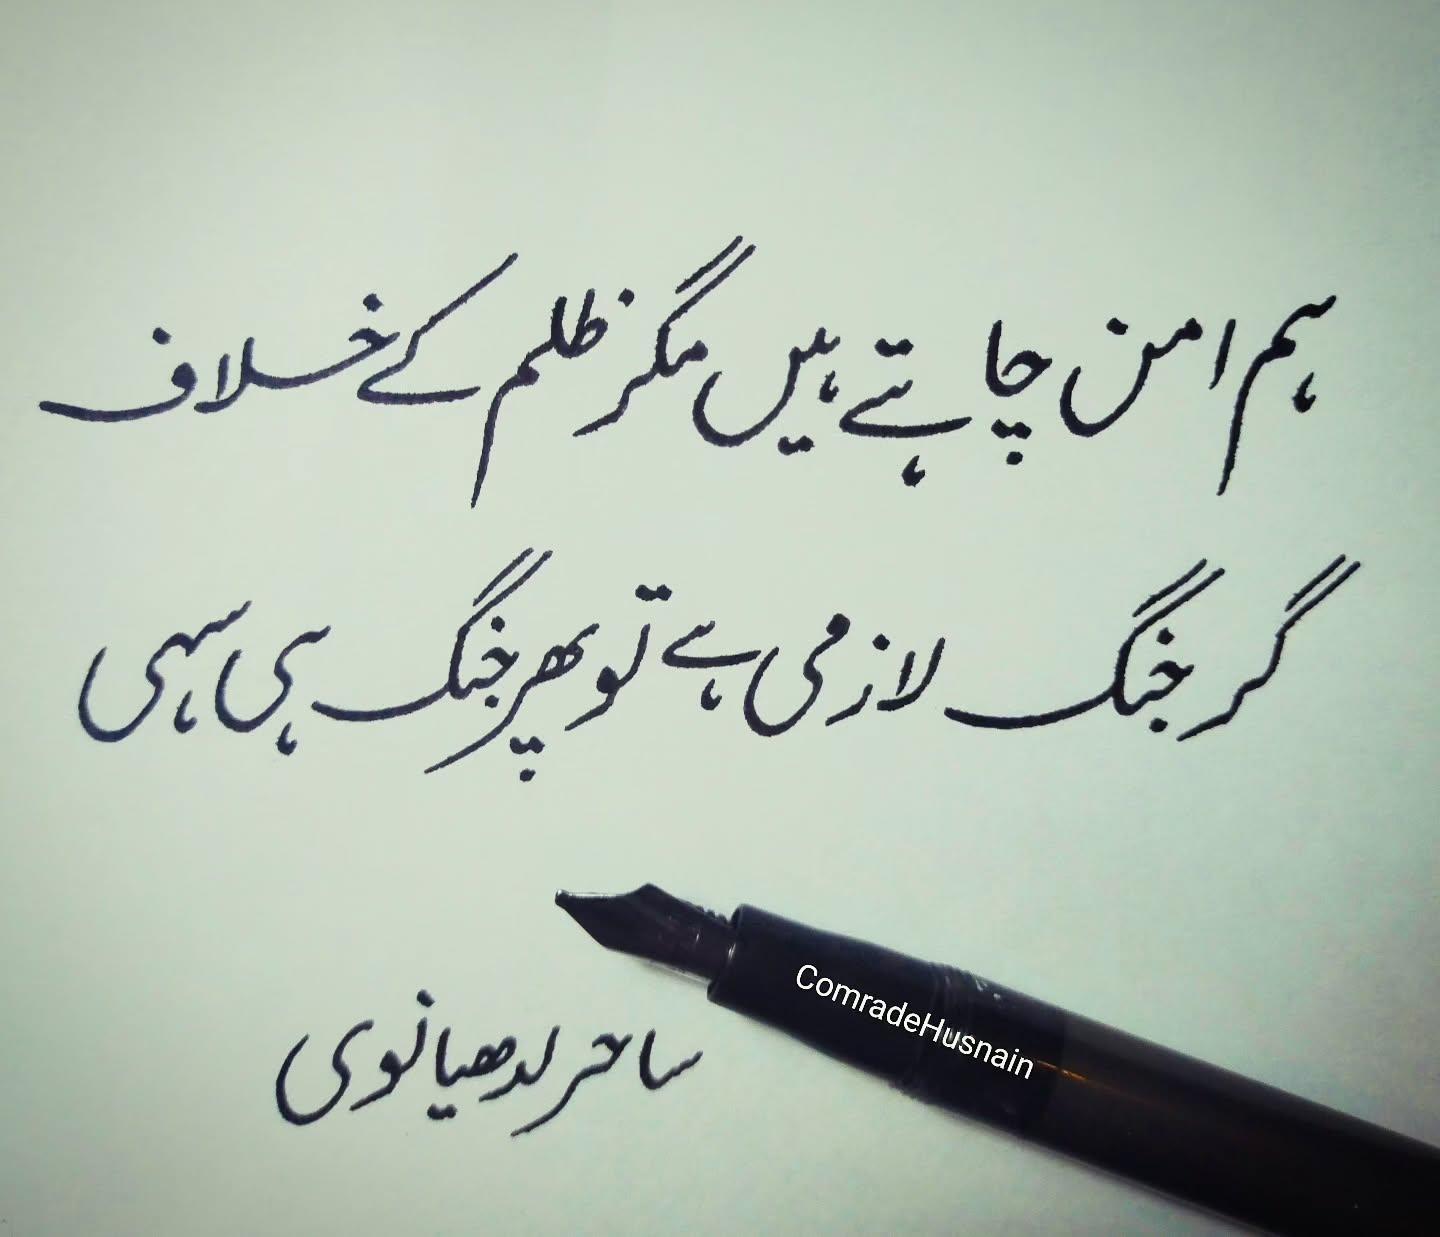 ہم امن چاہتے ہیں مگر ظلم کے خلاف
گر جنگ لازمی ہے تو پھر جنگ ہی سہی
ساحر لدھیانوی
ComradeHusnain